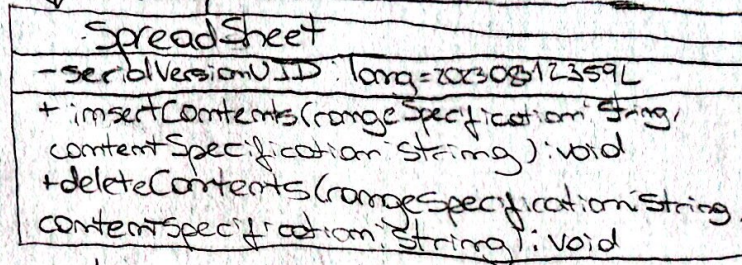 SpreadSheet
- serialVersionUID: long = 202308312359L
+ insertContents(rangeSpecification: String,
contentSpecification: String): void
+ deleteContents(rangeSpecification: String
contentSpecification: String): void